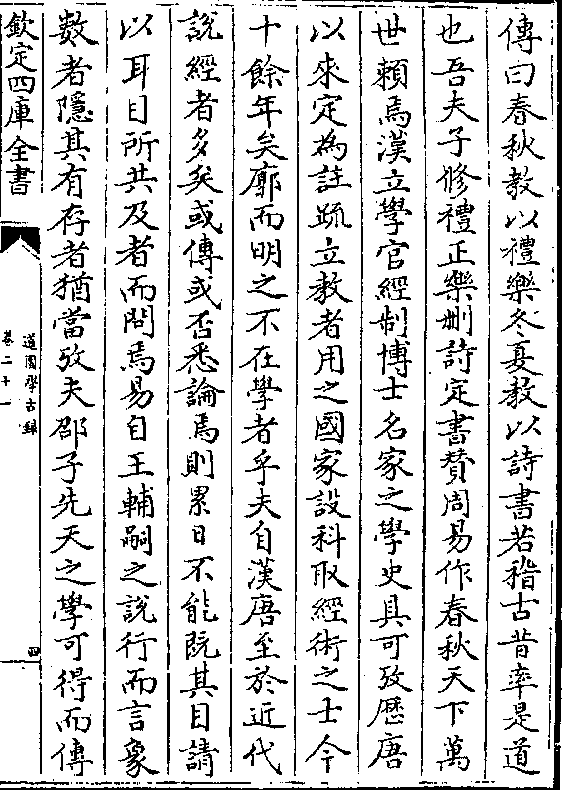 傳曰春秋教以禮樂冬夏教以詩書若稽古昔率是道
也吾夫子修禮正樂刪詩定書贊周易作春秋天下萬
世賴焉漢立學官經制博士名家之學史具可攷歴唐
以來定為註䟽立教者用之國家設科取經術之士今
十餘年矣廓而明之不在學者乎夫自漢唐至於近代
說經者多矣或傳或否悉論焉則累日不能既其目請
以耳目所共及者而問焉易自王輔嗣之說行而言象
數者隱其有存者猶當攷夫邵子先天之學可得而傳
欽定四庫全書
道園學古録
卷二十一
四